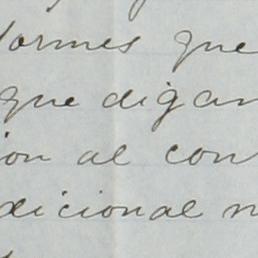 formes que
que digan
ion al con
dicional n